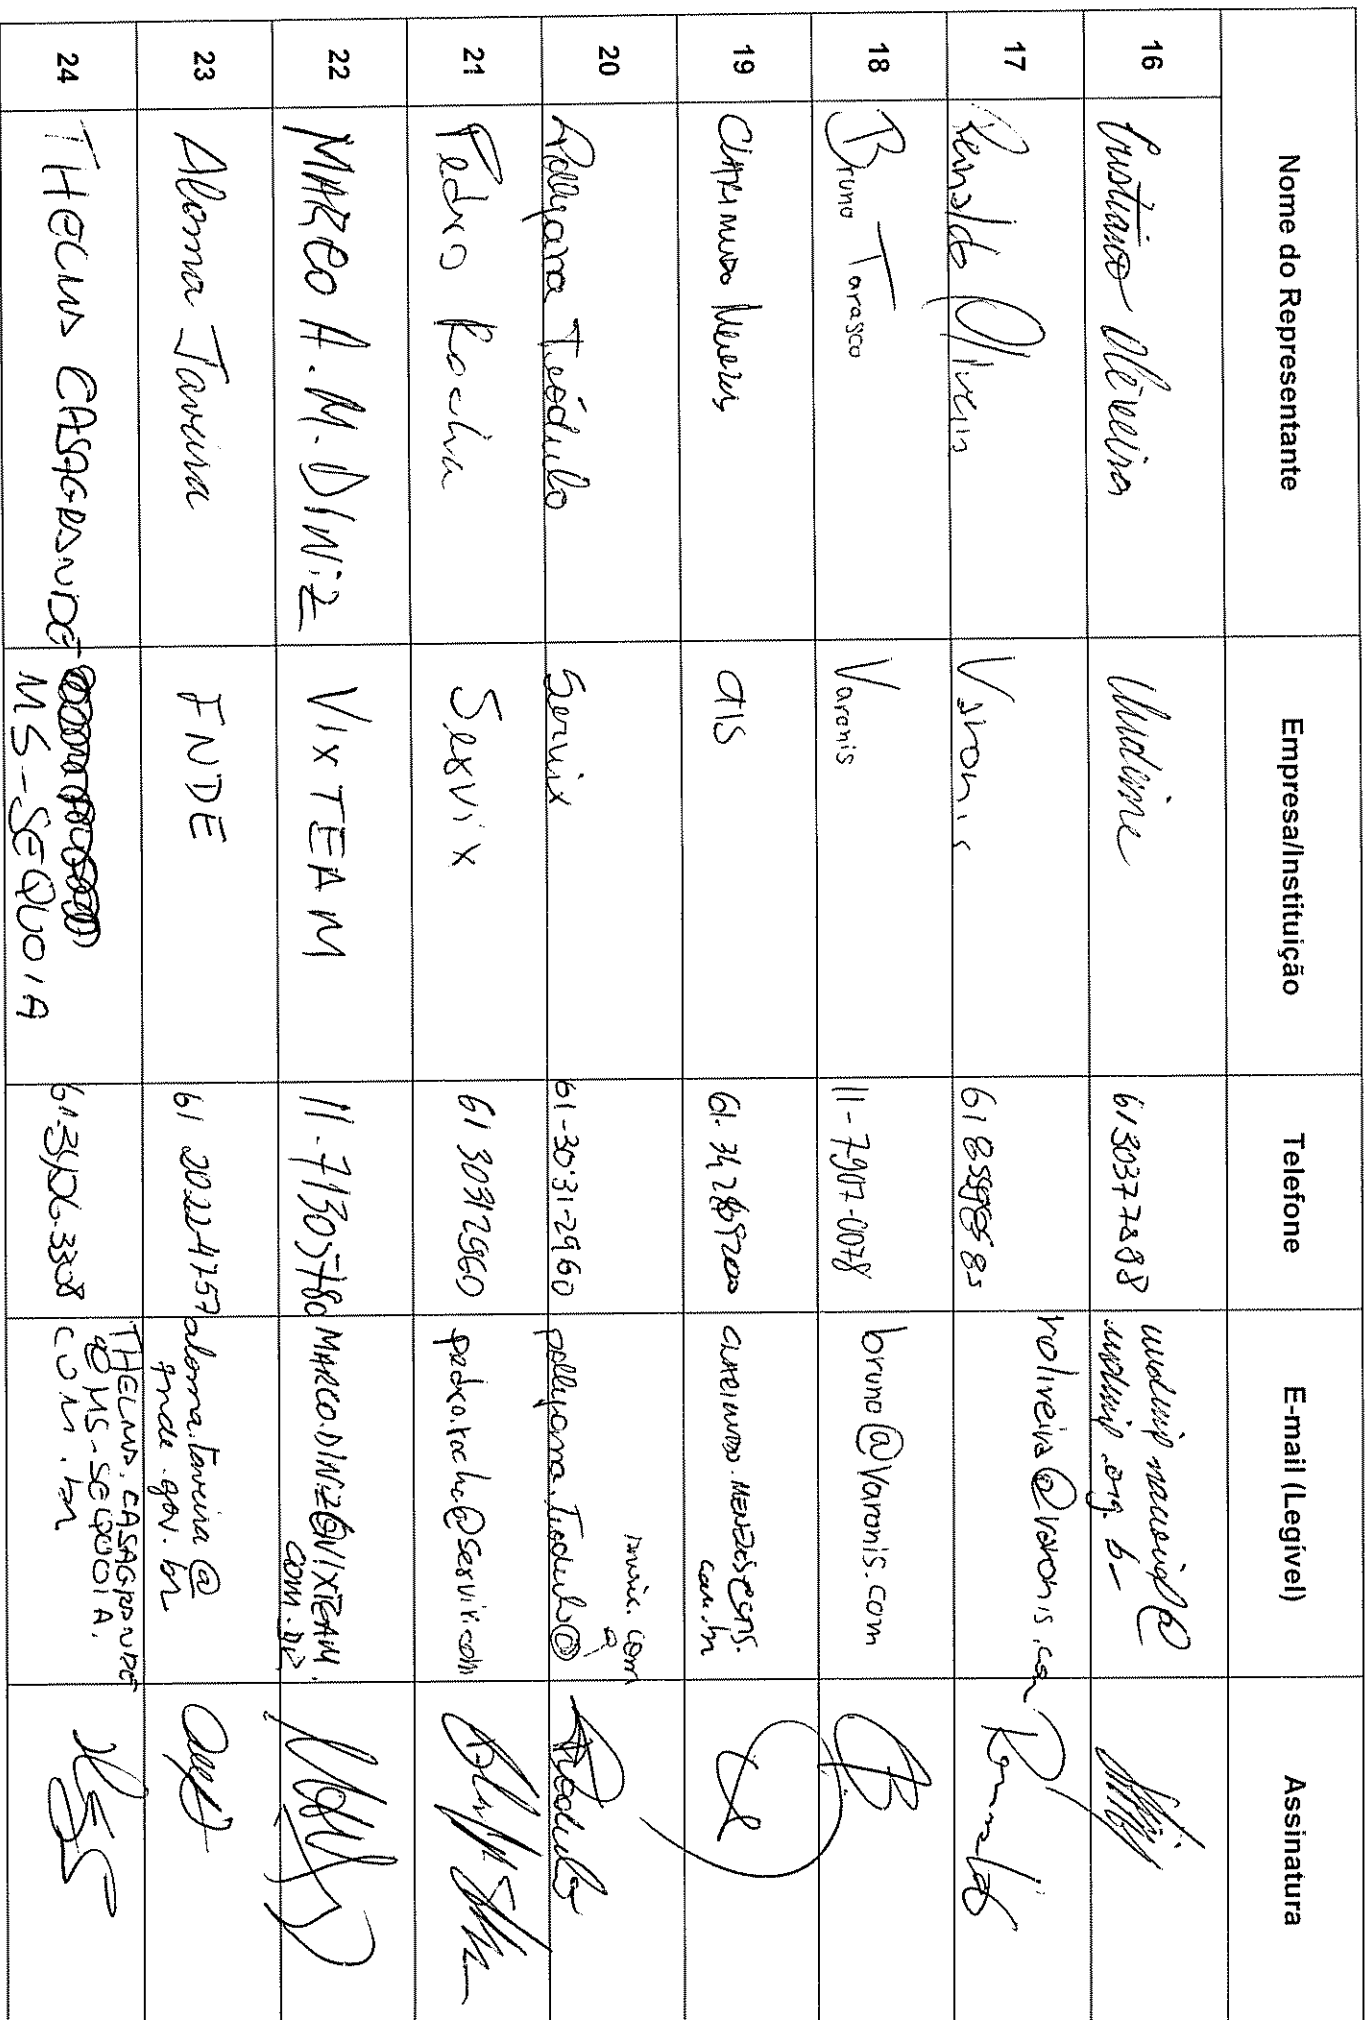 Nome do Representante Empresa/Instituição Telefone E-mail (Legível) Assinatura
16 Cristiano Oliveira Undime 61 30377888 undime nacional@
undime.org.br
17 Reinaldo Oliveira Varonis 61 roliveira@varonis.com
18 Bruno Tarasco Varonis 11-7907-0078 bruno@varonis.com
19 Clarimundo Menezes CTIS 61.
com.br
20 Pollyana Teódulo Servix 61-3031-2960 pollyana.Teodulo@
servix.com
21 Pedro Rocha Servix 61 30312960 pedro.rocha@servix.com
22 MARCO A. M. DINIZ VIXTEAM 11-71305780 MARCO.DINIZ@VIXTEAM.
COM.BR
23 Aloma Taveira FNDE 61 2022-4757 aloma.taveira@
fnde.gov.br
24 THELMA CASAGRANDE MS-SEQUOIA THELMA.CASAGRANDE
@MS-SEQUOIA.
COM.br